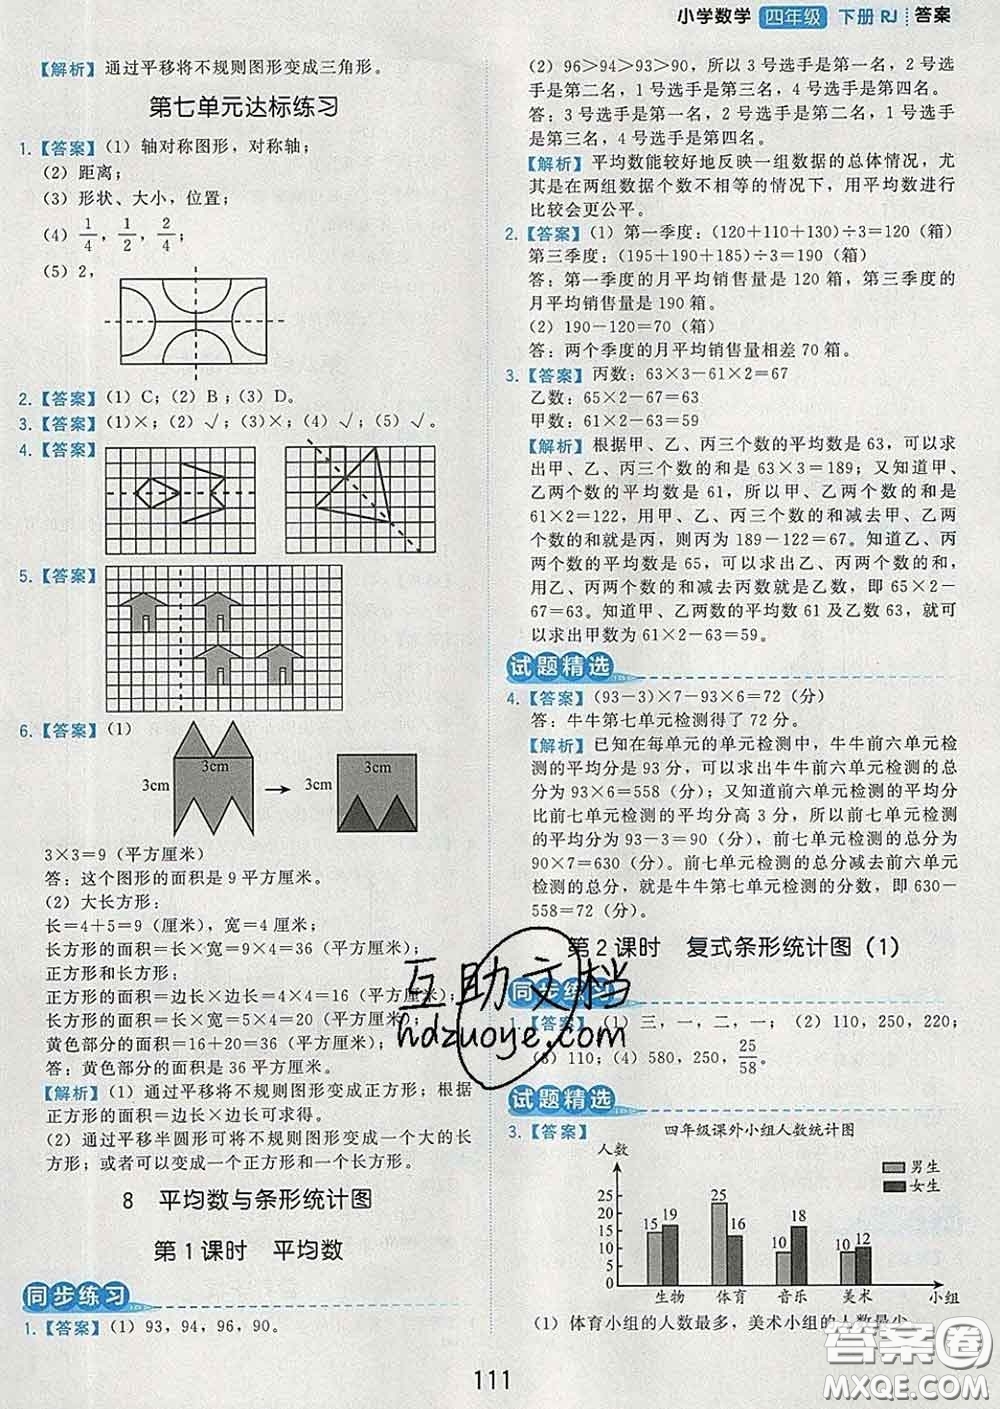 小学数学 四年级 下册 RJ 答案
【解析】通过平移将不规则图形变成三角形。
第七单元达标练习
1.【答案】(1) 轴对称图形，对称轴；
(2) 距离；
(3) 形状、大小，位置；
(4) 1/4，1/2，2/4；
(5) 2，
2.【答案】(1) C；(2) B；(3) D。
3.【答案】(1)×；(2)√；(3)×；(4)√；(5)√。
4.【答案】
5.【答案】
6.【答案】(1)
3cm
3cm
3cm
3cm
3×3=9（平方厘米）
答：这个图形的面积是 9 平方厘米。
(2) 大长方形：
长=4+5=9（厘米），宽=4 厘米；
长方形的面积=长×宽=9×4=36（平方厘米）；
正方形和长方形：
正方形的面积=边长×边长=4×4=16（平方厘米）；
长方形的面积=长×宽=5×4=20（平方厘米）；
黄色部分的面积=16+20=36（平方厘米）；
答：黄色部分的面积是 36 平方厘米。
【解析】(1) 通过平移将不规则图形变成正方形；根据正方形的面积=边长×边长可求得。
(2) 通过平移半圆形可将不规则图形变成一个大的长
方形；或者可以变成一个正方形和一个长方形。
8 平均数与条形统计图
第 1 课时 平均数
同步练习
1.【答案】(1) 93，94，96，90。
(2) 96>94>93>90，所以 3 号选手是第一名，2 号选
手是第二名，1 号选手是第三名，4 号选手是第四名。
答：3 号选手是第一名，2 号选手是第二名，1 号选手
是第三名，4 号选手是第四名。
【解析】平均数能较好地反映一组数据的总体情况，尤
其是在两组数据个数不相等的情况下，用平均数进行
比较会更公平。
2.【答案】(1) 第一季度：(120+110+130)÷3=120（箱）
第三季度：(195+190+185)÷3=190（箱）
答：第一季度的月平均销售量是 120 箱，第三季度的
月平均销售量是 190 箱。
(2) 190-120=70（箱）
答：两个季度的月平均销售量相差 70 箱。
3.【答案】丙数：63×3-61×2=67
乙数：65×2-67=63
甲数：61×2-63=59
【解析】根据甲、乙、丙三个数的平均数是 63，可以求
出甲、乙、丙三个数的和是 63×3=189；又知道甲、
乙两个数的平均数是 61，所以甲、乙两个数的和是
61×2=122，用甲、乙、丙三个数的和减去甲、乙两
个数的和就是丙，则丙为 189-122=67。知道乙、丙
两个数的平均数是 65，可以求出乙、丙两个数的和，
用乙、丙两个数的和减去丙数就是乙数，即 65×2-
67=63。知道甲、乙两数的平均数 61 及乙数 63，就可
以求出甲数为 61×2-63=59。
试题精选
4.【答案】(93-3)×7-93×6=72（分）
答：牛牛第七单元检测得了 72 分。
【解析】已知在每单元的单元检测中，牛牛前六单元检
测的平均分是 93 分，可以求出牛牛前六单元检测的总
分为 93×6=558（分）；又知道前七单元检测的平均分
比前六单元检测的平均分高 3 分，所以前七单元检测
的平均分为 93-3=90（分），前七单元检测的总分为
90×7=630（分）。前七单元检测的总分减去前六单元
检测的总分，就是牛牛第七单元检测的分数，即 630-
558=72（分）。
第 2 课时 复式条形统计图 (1)
同步练习
1.【答案】(1) 三，一，二，一；(2) 110，250，220；
(3) 110；(4) 580，250，25/58。
试题精选
3.【答案】 四年级课外小组人数统计图
人数
男生
女生
25
20
15
10
5
0
15 19
25 16
10 18
10 12
生物 体育 音乐 美术 小组
(1) 体育小组的人数最多，美术小组的人数最少。
111
互助文档
hdzuoye.com
答案圈
MXQE.COM